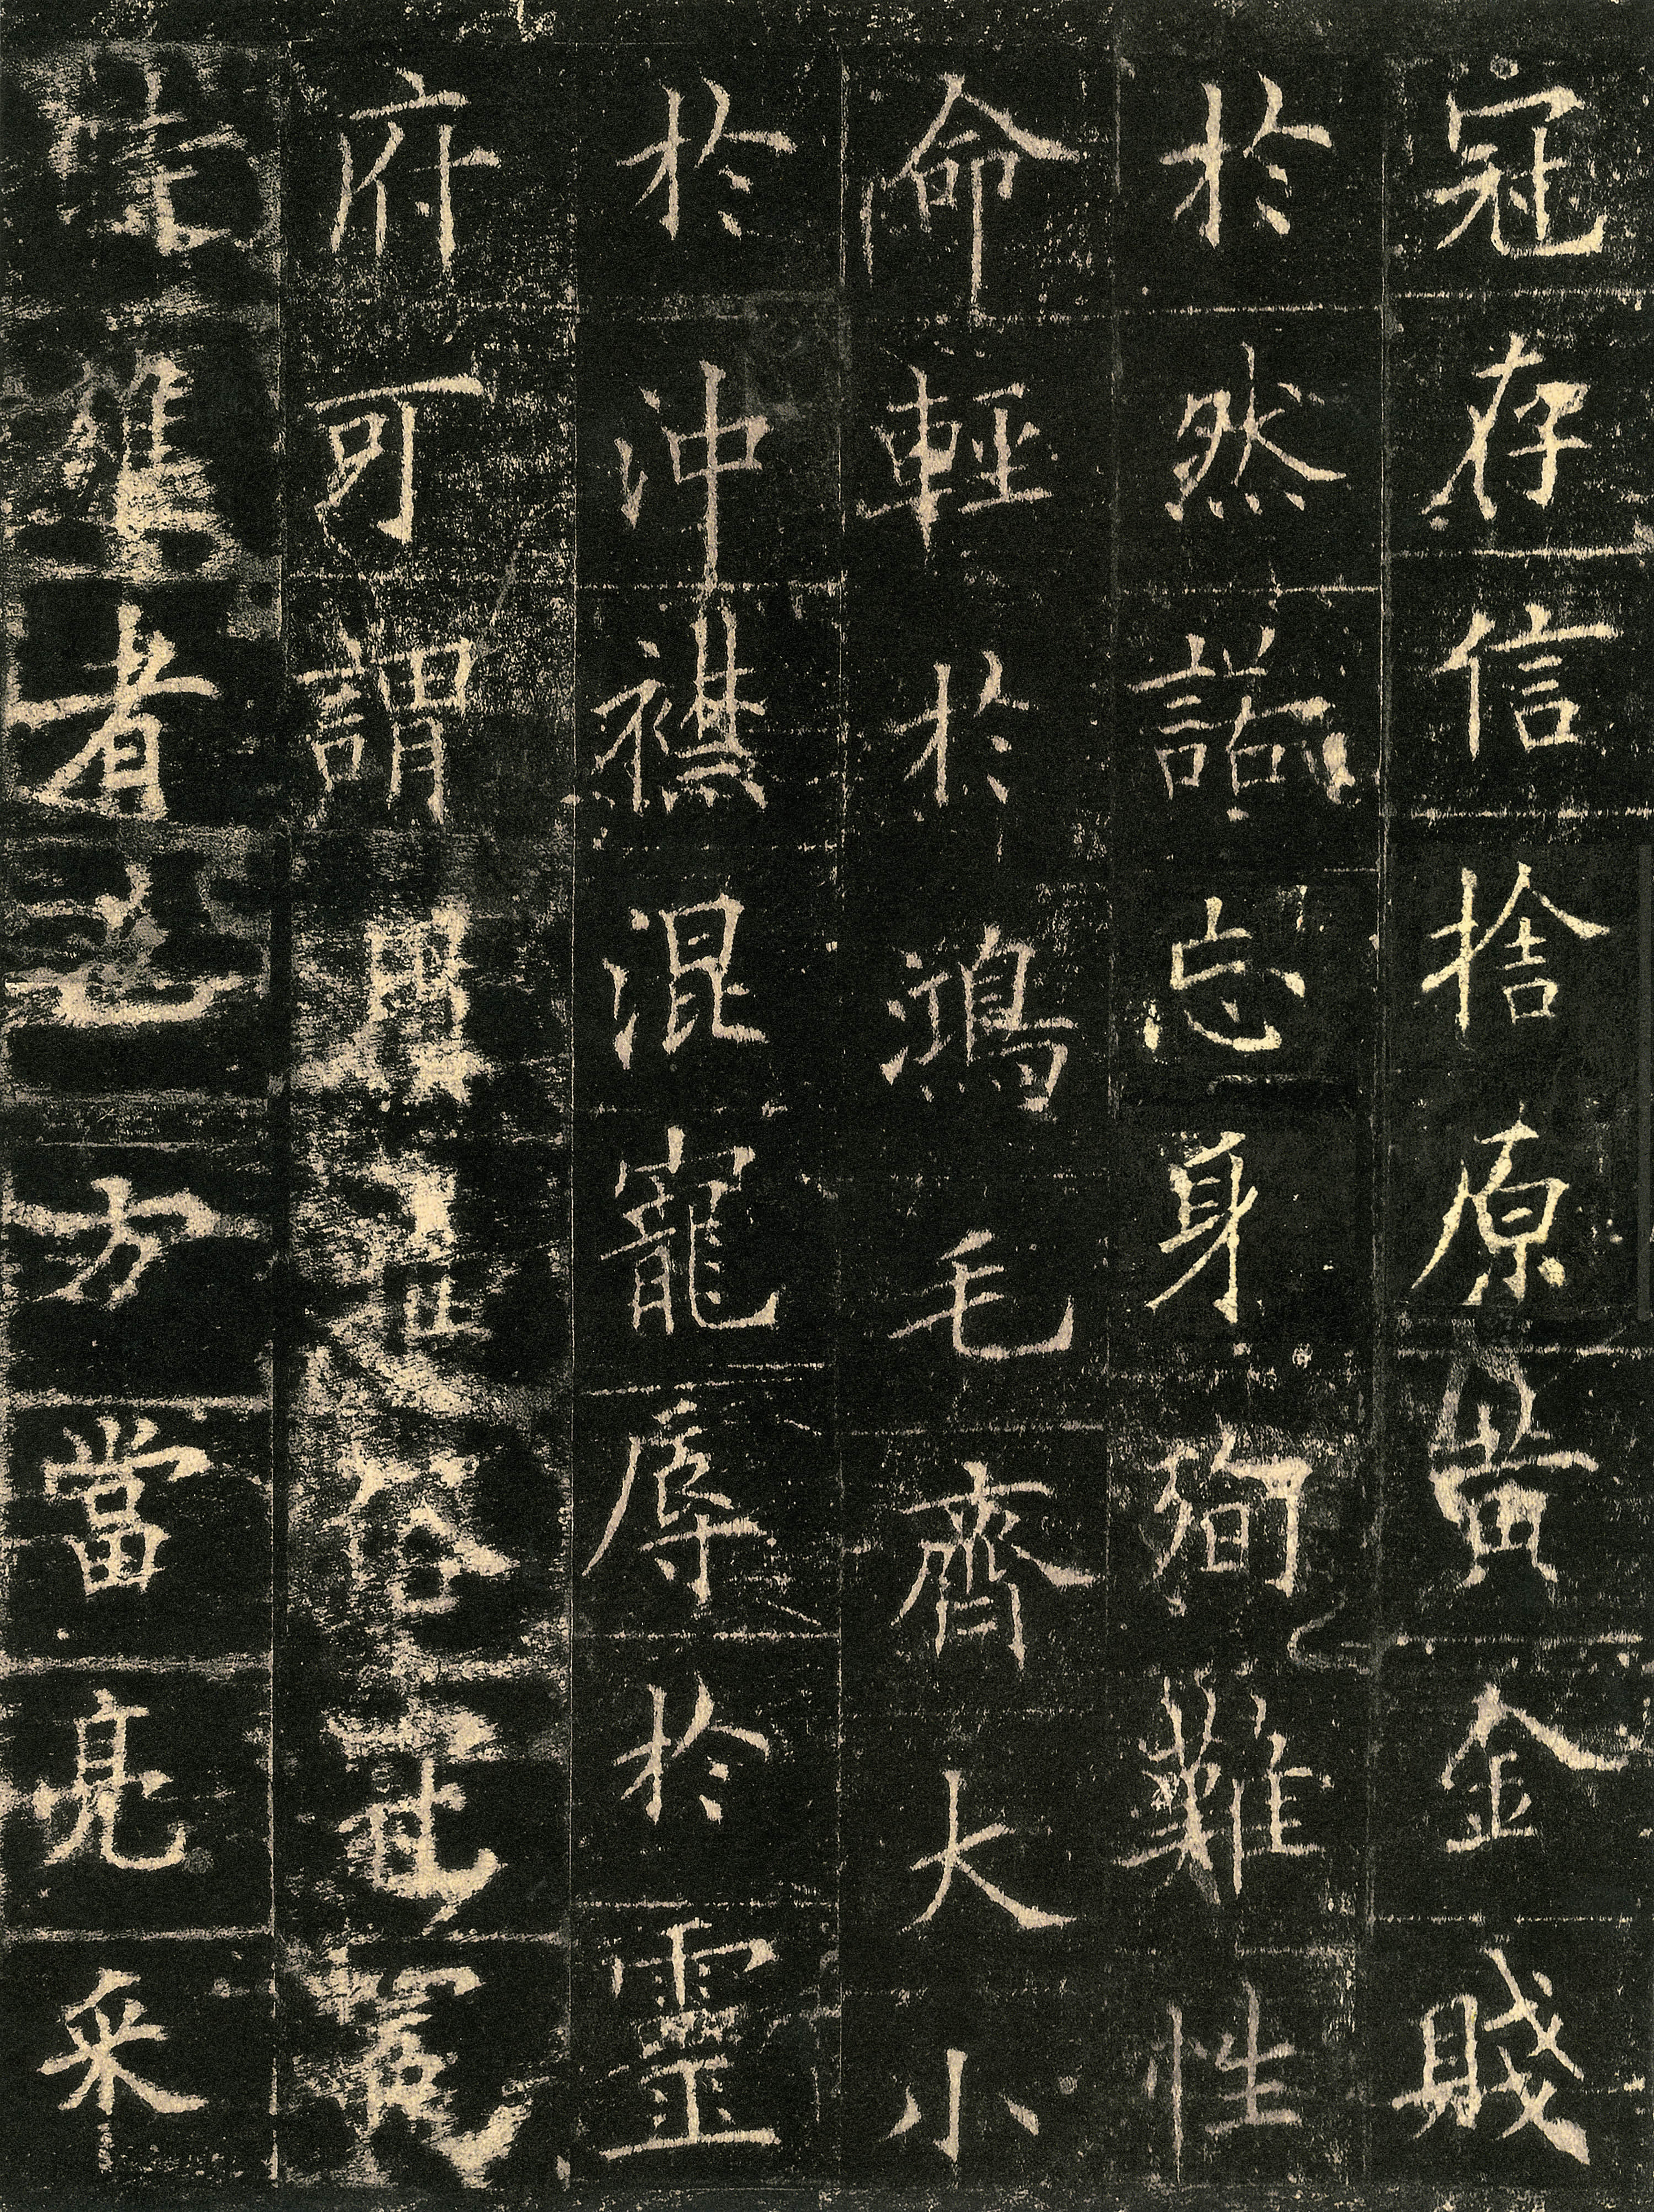 冠存信捨原黃金賤
於然諾忘身殉難性
命輕於鴻毛齊大小
於沖襟混寵辱於靈
府可謂俗
者也方當亮采